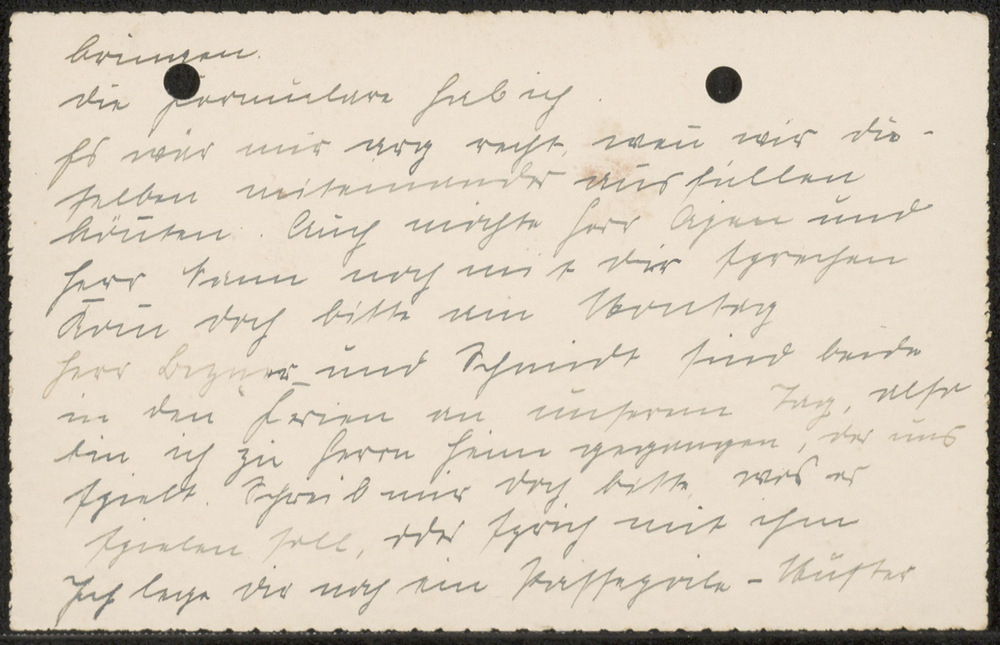 bringen.
die Formulare hab ich.
Es wär mir arg recht, wen̄ wir die-
selben miteinander ausfüllen
kön̄ten. Auch möchte Herr und
Herr noch mit dir sprechen
Kom̄ doch bitte am Montag
Herr und Schmidt sind beide
in den Ferien an unserem Tag, also
bin ich zu Herrn Heim gegangen, der uns
spielt. Schreib mir doch bitte, was er
spielen soll, oder sprich mit ihm
Ich lege dir noch ein - Muster